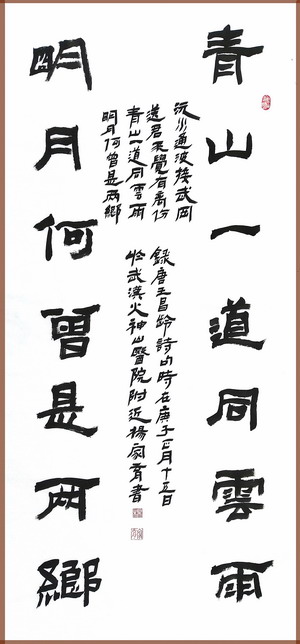 青山一道同雲雨
明月何曾是兩鄉
沅水通波接武岡
送君不覺有離傷
青山一道同雲雨
明月何曾是兩鄉
錄唐王昌齡詩句時在庚子正月十五日
於武漢火神山醫院附近楊家者